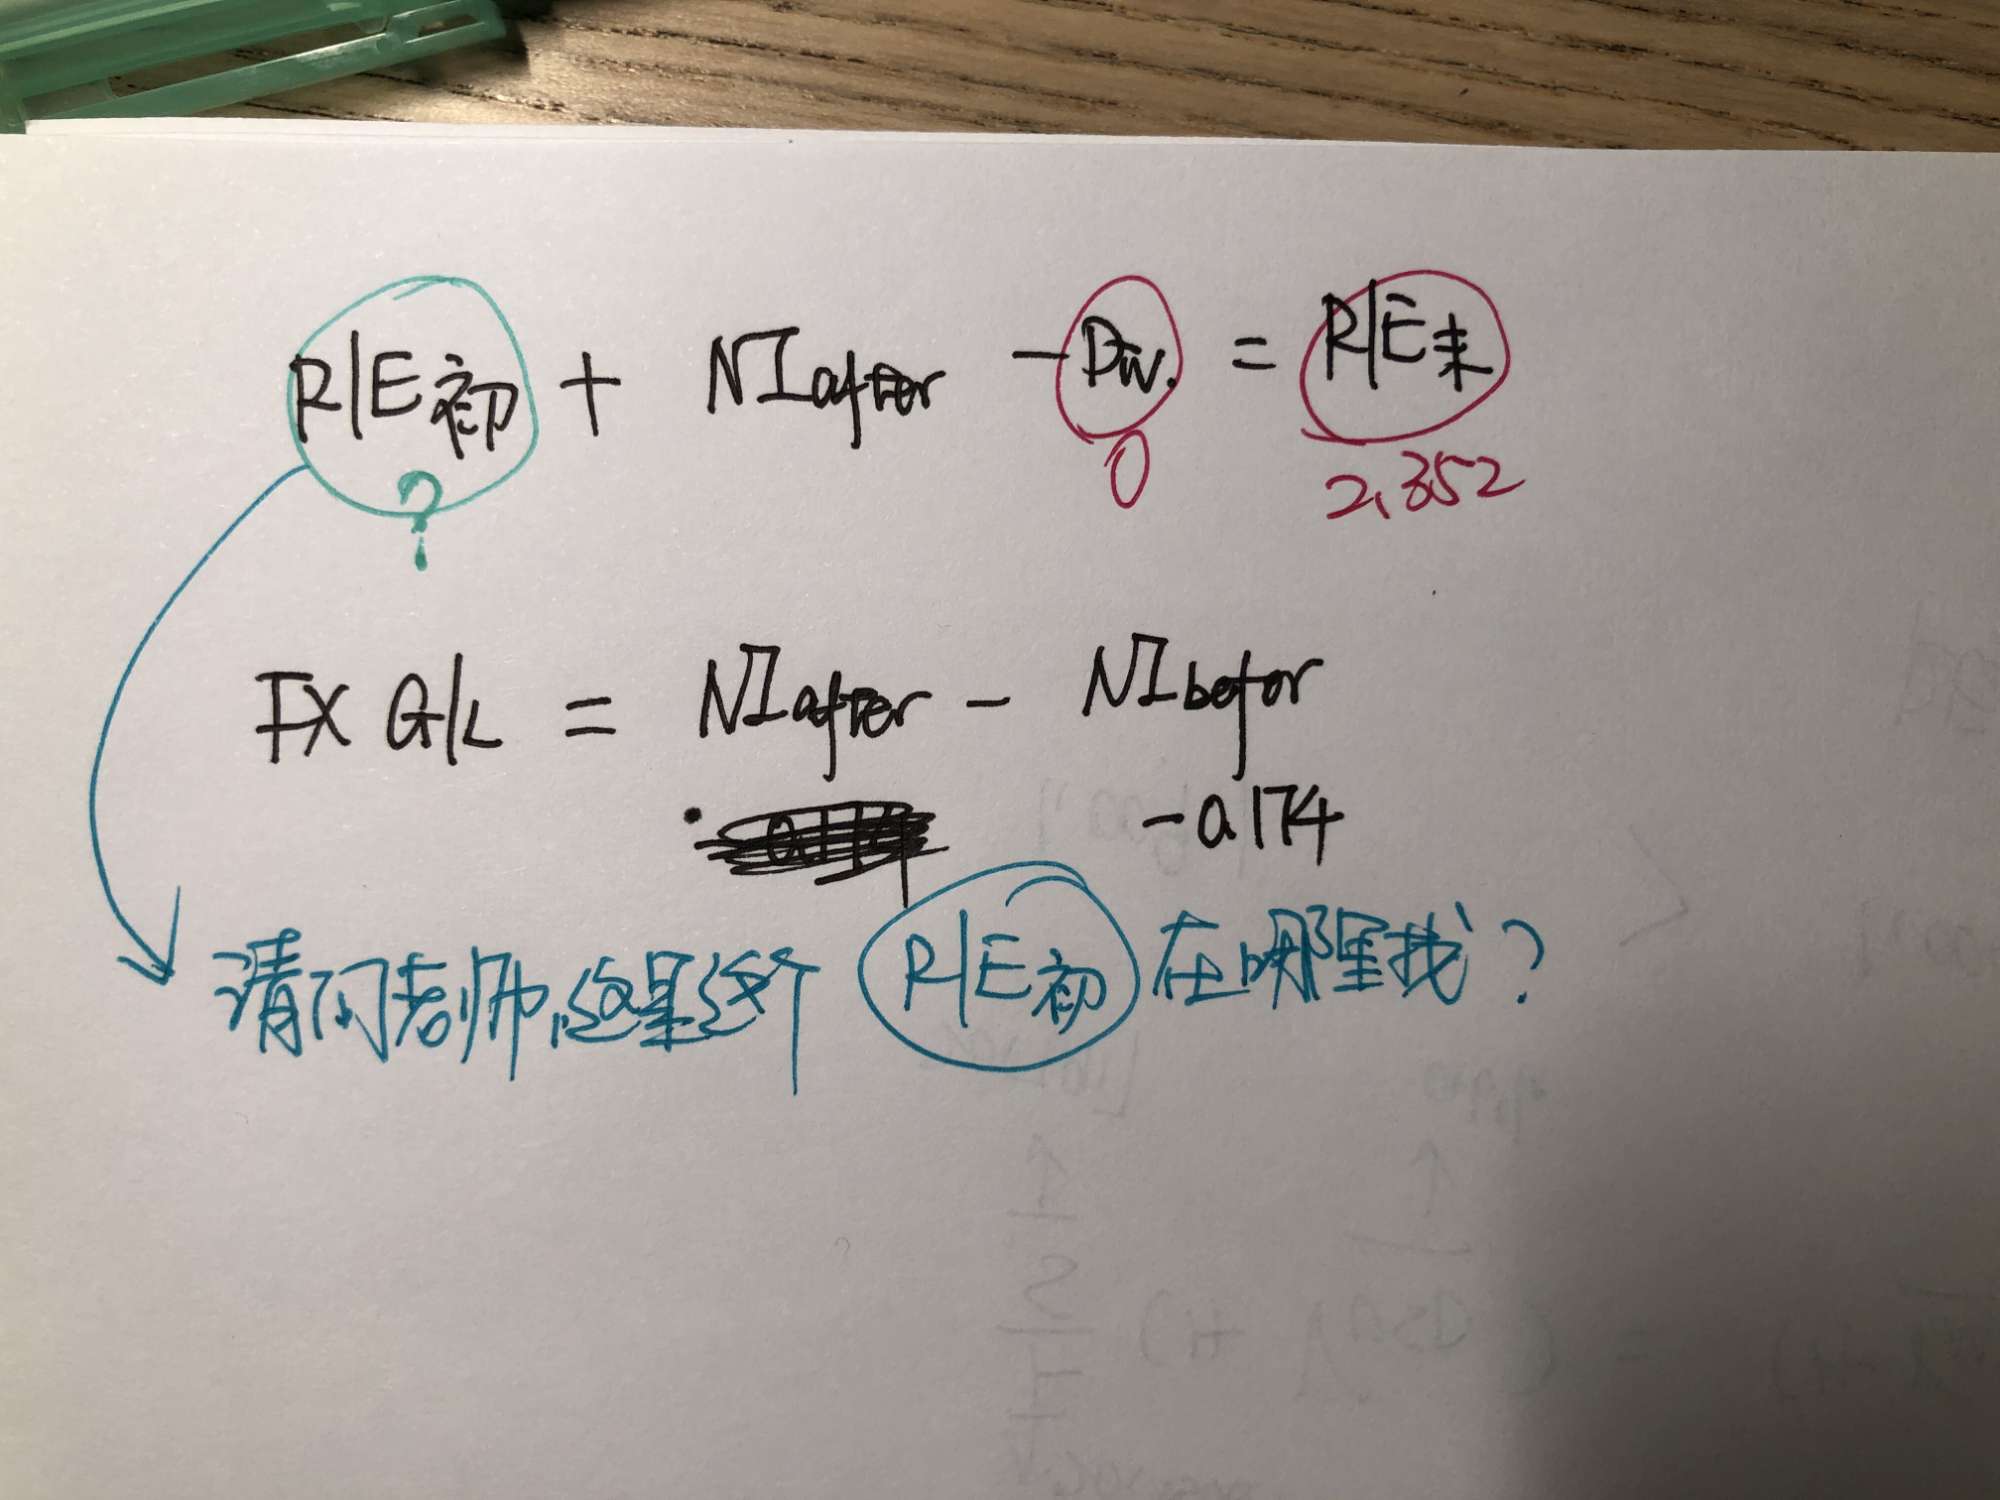 R/E初 + NIafter - Div. = R/E末
? 0 2,352
FX G/L = NIafter - NIbefor
-0.174
请问老师,这是这个 R/E初 在哪里找?